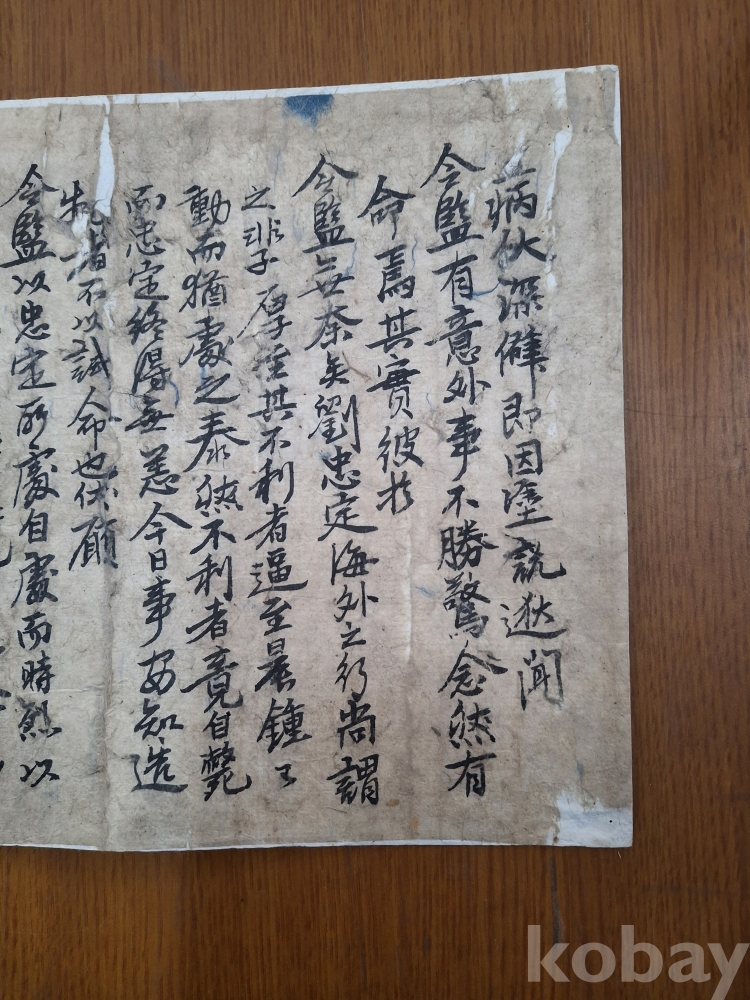 病伏深僻即因塗說逖聞
令監有意外事不勝驚念然有
命焉其實彼於
令監無奈矣劉忠定海外之行尚謂
之非子厚至其不利者逼至晨鍾
動而猶處之泰然不利者竟自斃
而忠定終得無恙今日事安知造
者不以試命也伏願
令監以忠定所處自處而時烈以
kobay